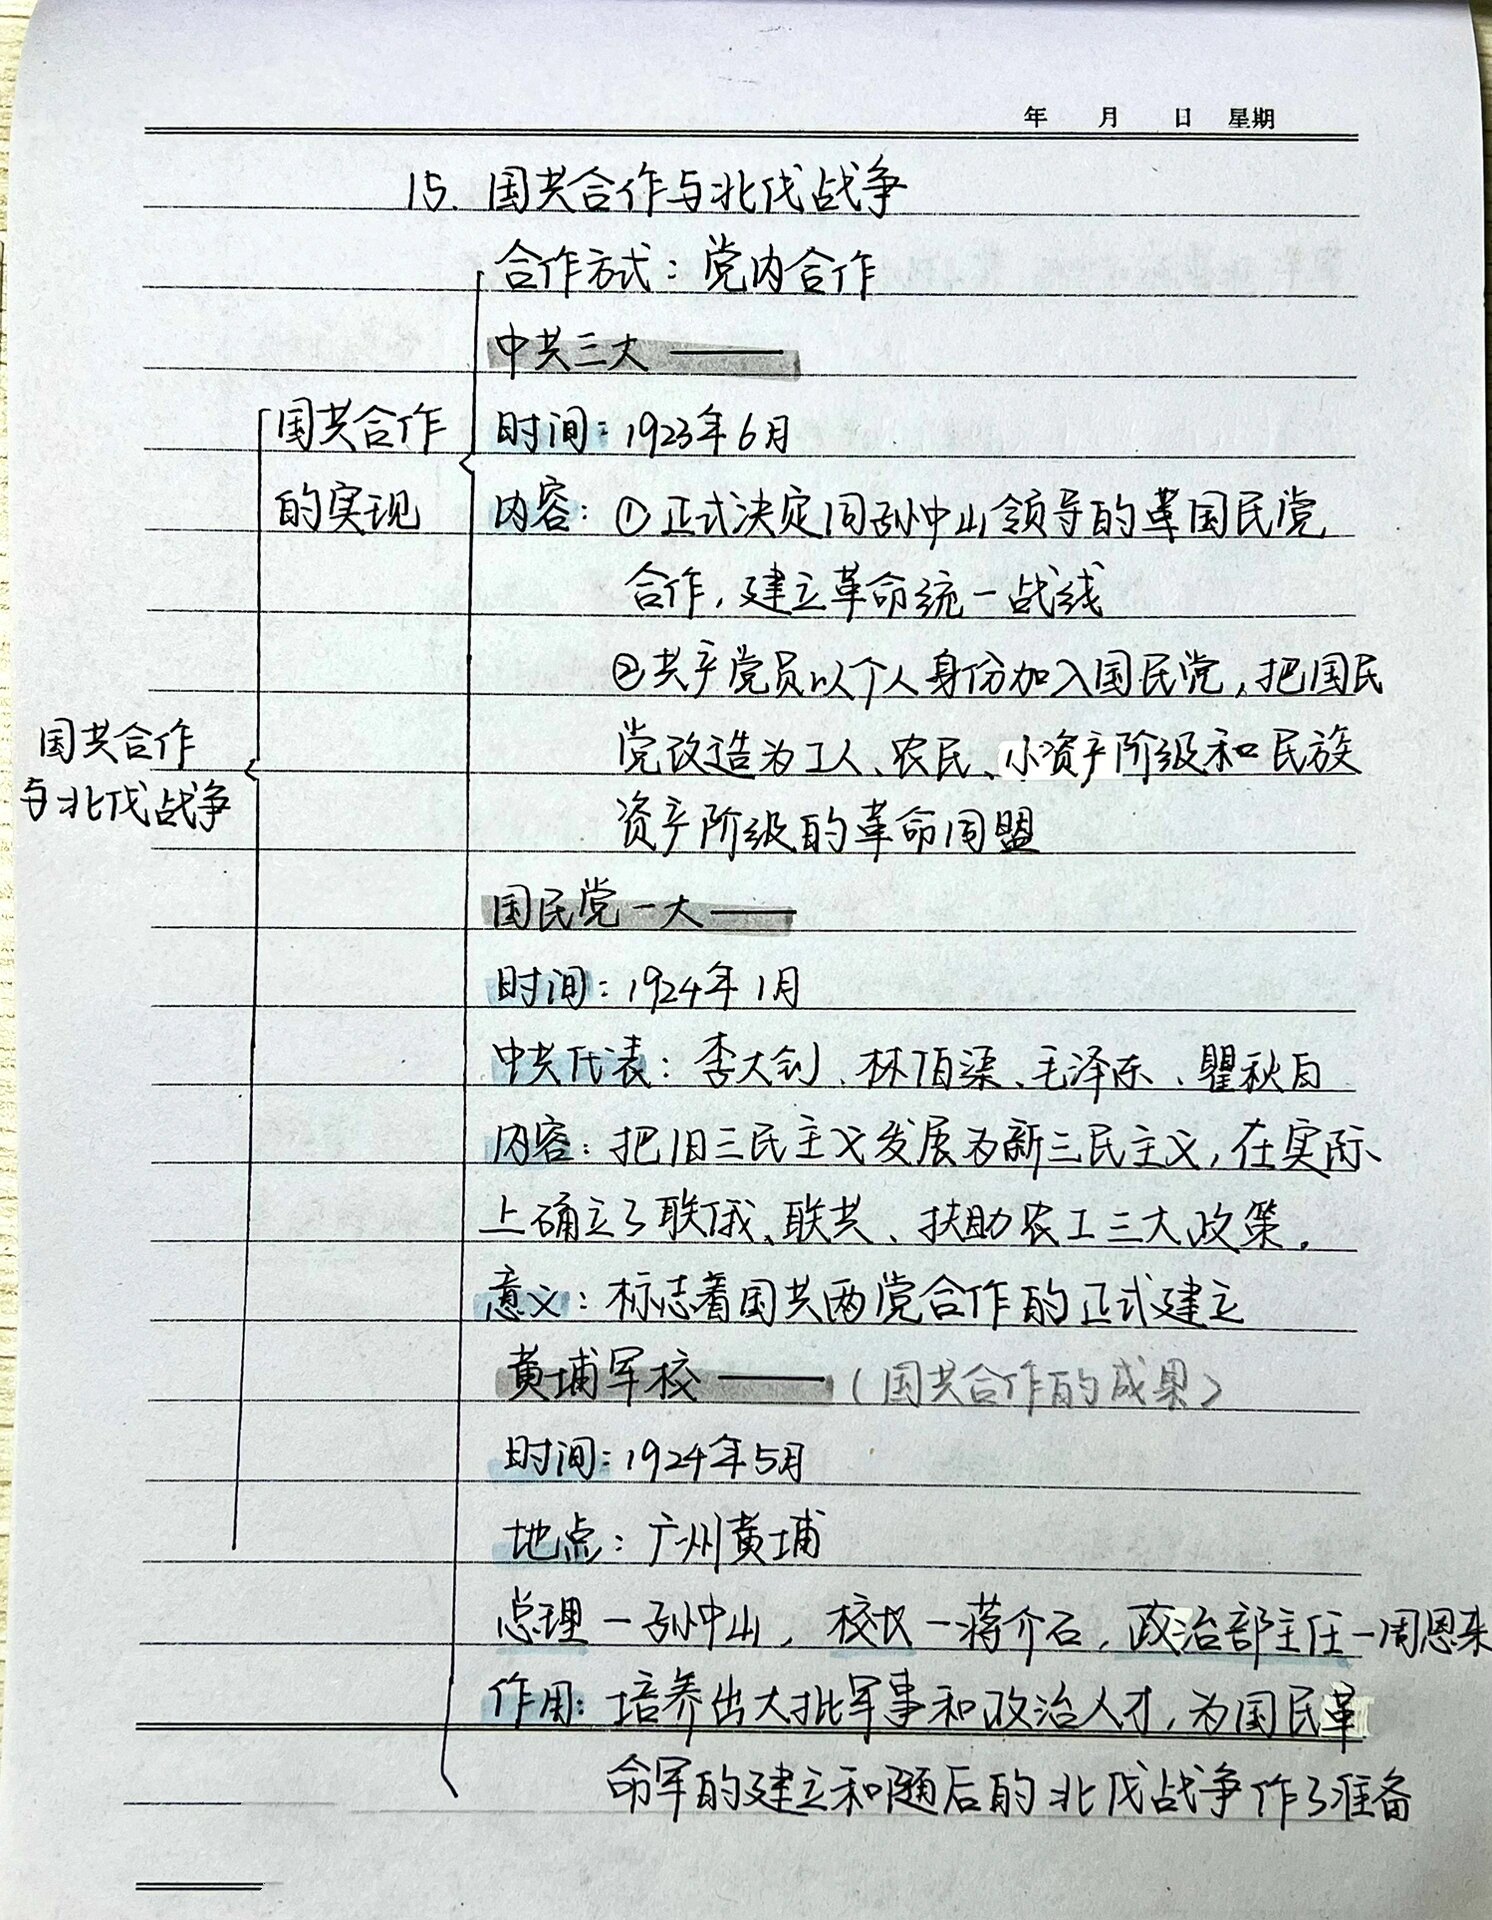 年 月 日 星期
15. 国共合作与北伐战争
合作方式：党内合作
中共三大 ——
国共合作
的实现
时间：1923年6月
内容：①正式决定同孙中山领导的革国民党
合作，建立革命统一战线
②共产党员以个人身份加入国民党，把国民
党改造为工人、农民、小资产阶级和民族
资产阶级的革命同盟
国共合作
与北伐战争
国民党一大 ——
时间：1924年1月
中共代表：李大钊、林伯渠、毛泽东、瞿秋白
内容：把旧三民主义发展为新三民主义，在实际
上确立了联俄、联共、扶助农工三大政策。
意义：标志着国共两党合作的正式建立
黄埔军校 ——（国共合作的成果）
时间：1924年5月
地点：广州黄埔
总理－孙中山，校长－蒋介石，政治部主任－周恩来
作用：培养出大批军事和政治人才，为国民革
命军的建立和随后的北伐战争作了准备